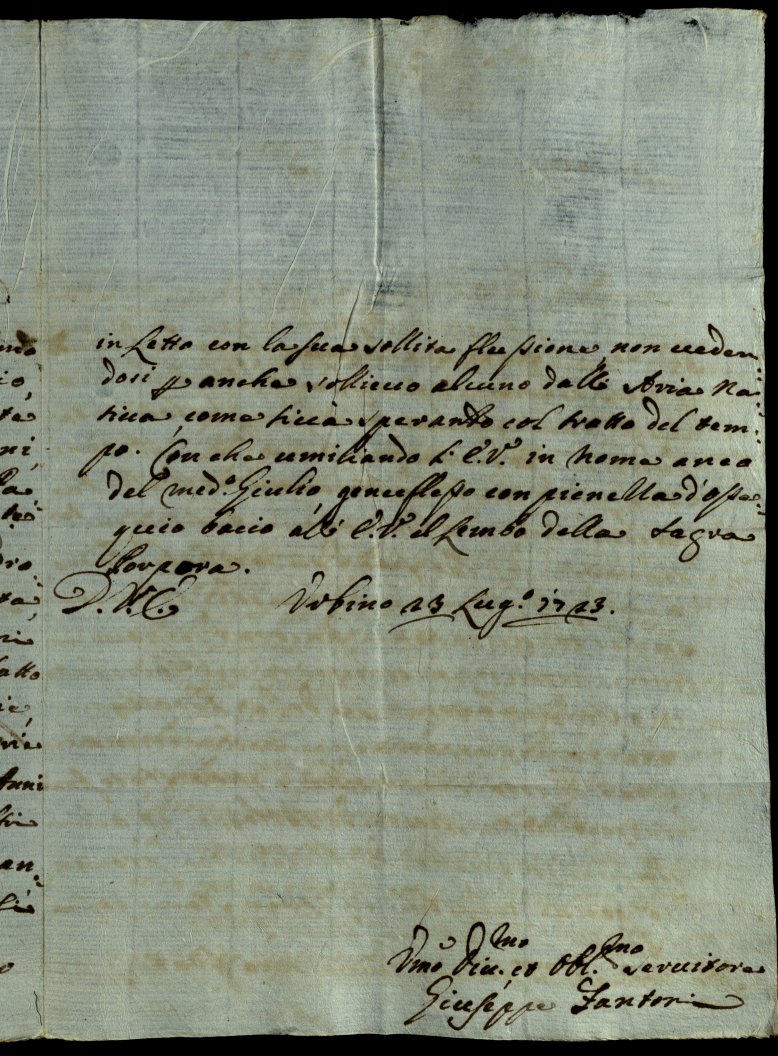 mo
io,
te
ni,
la
te
dro
ta
ri
atto
ie,
via
Anni
tri
an
li
o
in Letto con la sua sollita flussione non ueden:
dosi p anche sollieuo alcuno dall' Aria Na:
tiua, come si uà sperando col tratto del tem:
po. Con che umiliando à l'E.V. in nome anco
del med.o Giulio genuflesso con pienella d'osse:
quio bacio all' E.V. il Lembo della Sagra
Porpora.
D. V. E. Urbino 23 Lug.o 1723.
Vmo Diu.mo et Obl.mo seruitore
Giuseppe Fantoni